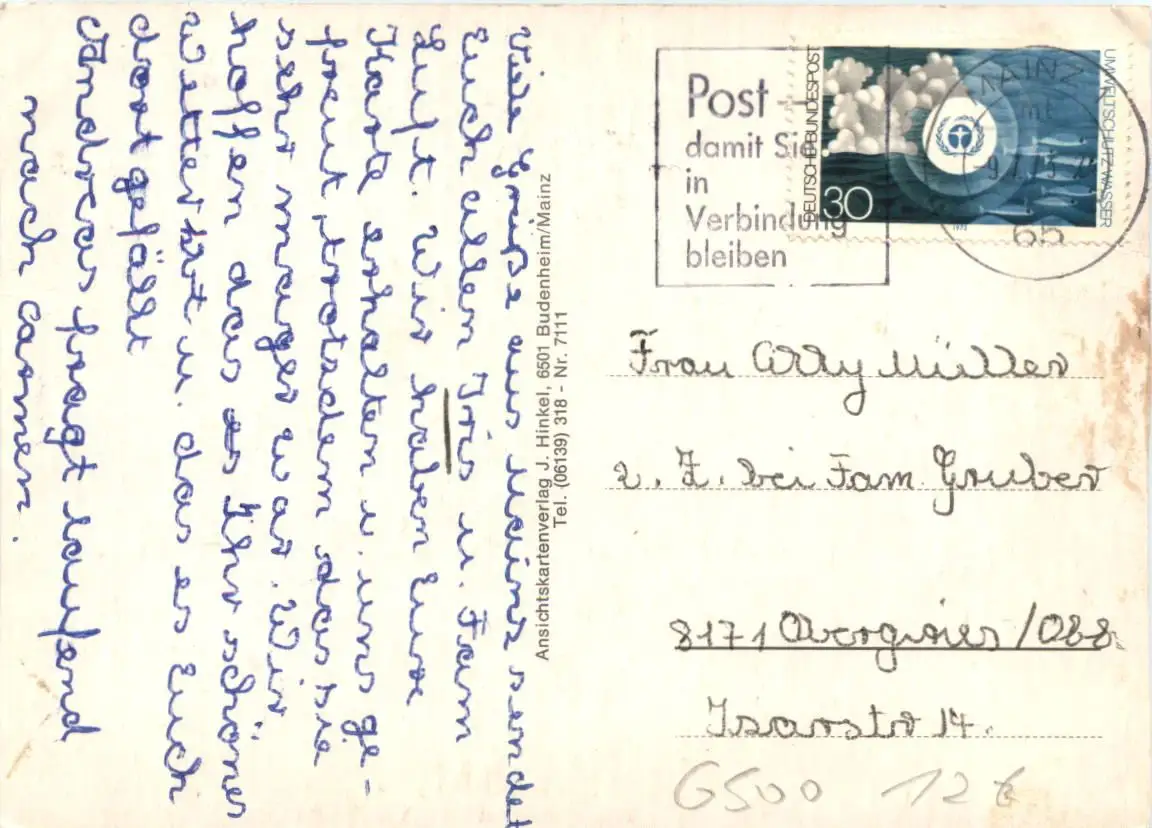 Viele Grüße aus Mainz sendet
Euch allen Iris u. Fam
Luft. Wir haben Eure
Karte erhalten u. uns ge-
freut, trotzdem das sie
sehr mager war. Wir
hoffen das es Ihr schönes
Wetter hbt u. das es Euch
dort gefällt
Andreas fragt laufend
nach Carmen.
Ansichtskartenverlag J. Hinkel, 6501 Budenheim/Mainz
Tel. (06139) 318 - Nr. 7111
Post -
damit Sie
in
Verbindung
bleiben
DEUTSCHE BUNDESPOST
30
UMWELTSCHUTZ: WASSER
1973
MAINZ
65
Frau Müller
z. Z. bei Fam. Gruber
8171 /OBB
Isarstr 14.
6500 12 €